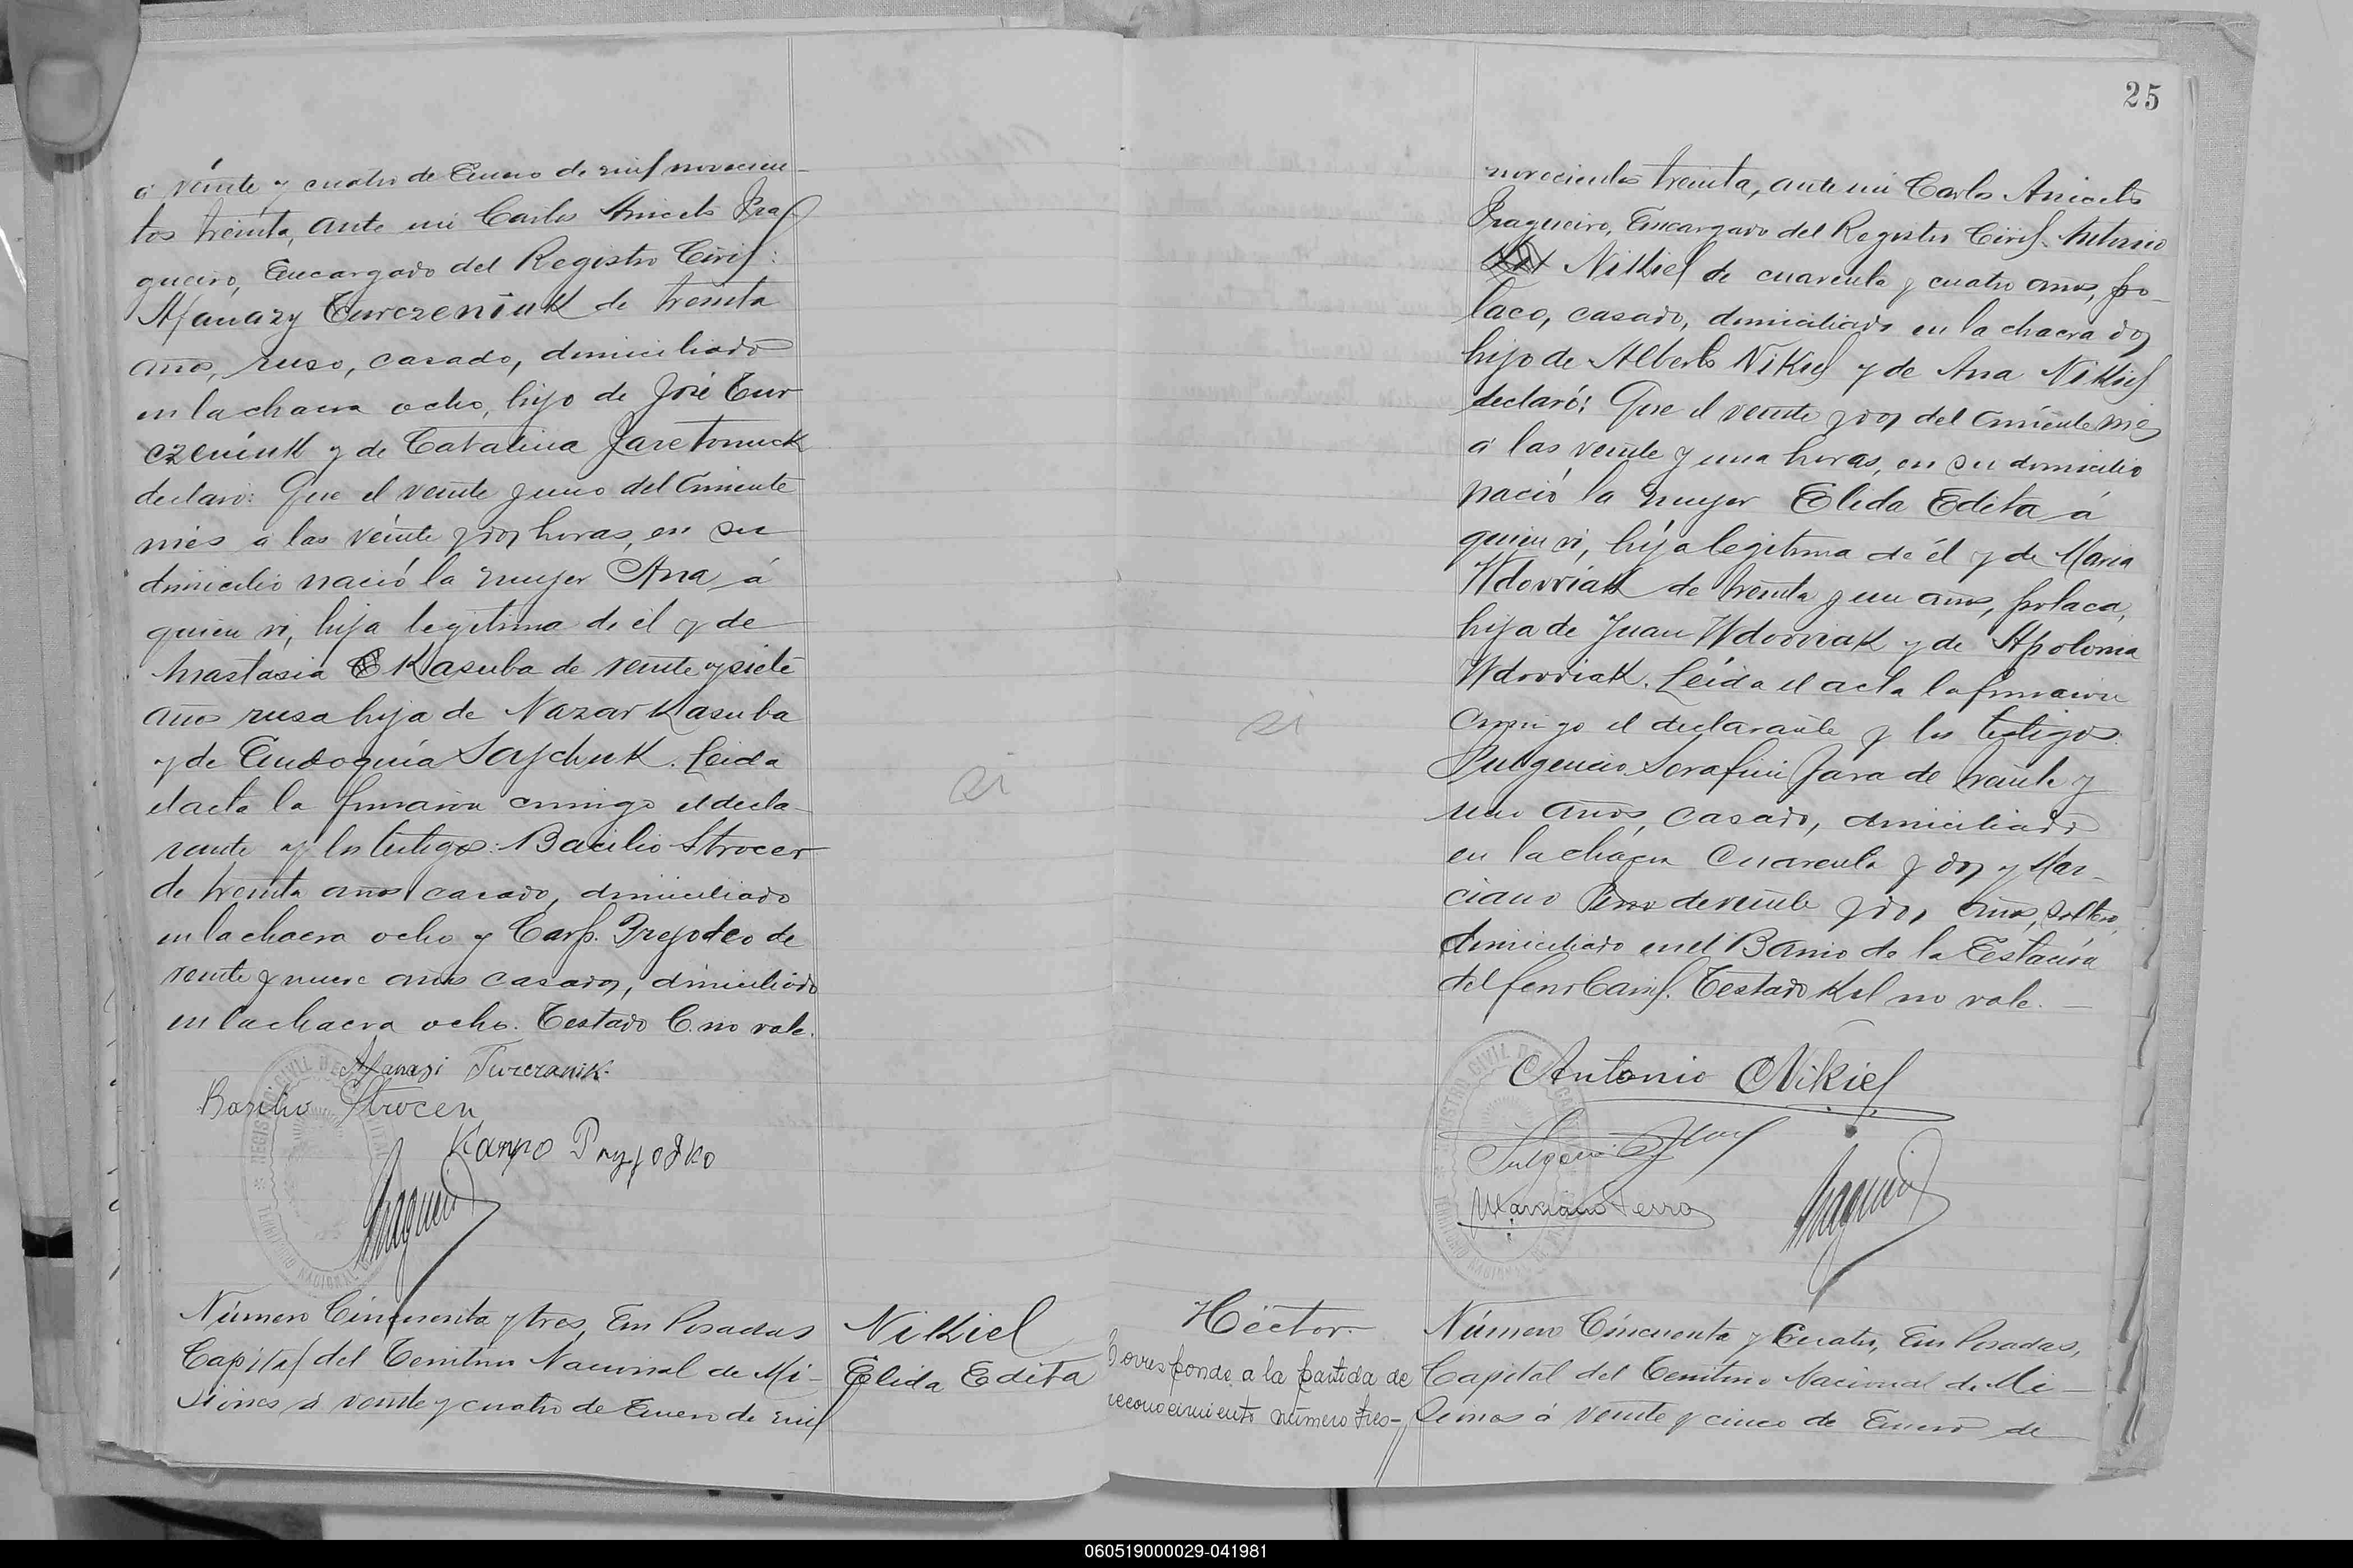 á veinte y cuatro de Enero de mil novecien-
tos treinta, ante mi Carlos Aniceto Fra-
gueiro, Encargado del Registro Civil:
Afanazy Turczeniuk de treinta
años, ruso, casado, domiciliado
en la chacra ocho, hijo de José Tur
czeniuk y de Catalina Jaretomuck
declaró: Que el veinte y uno del corriente
mes a las veinte y dos horas, en su
domicilio nació la mujer Ana, á
quien vi, hija legitima de él y de
Anastasia Kasuba de veinte y siete
años rusa hija de Nazar Kasuba
y de Eudoquia Saychuk. Leida
el acta la firmaron conmigo el decla-
rante y los testigos: Bacilio Strocer
de treinta años casado, domiciliado
en la chacra ocho y Carp. Prejodco de
veinte y nueve años casados, domiciliado
en la chacra ocho. Testado C. no vale.
Afanazi Turczanik.
Bariho Strocen
Karpo Pryjodko
REGISTRO CIVIL DE LA CAPITAL
TERRITORIO NACIONAL DE
Número Cincuenta y tres, En Posadas
Capital del Territorio Nacional de Mi-
siones á veinte y cuatro de Enero de mil
Nikiel
Elida Edita
si
25
novecientos treinta, ante mi Carlos Aniceto
Fragueiro, Encargado del Registro Civil. Antonio
Nikiel de cuarenta y cuatro años, po-
laco, casado, domiciliado en la chacra dos
hijo de Alberto Nikiel y de Ana Nikiel
declaró: Que el veinte y dos del corriente mes
a las veinte y una horas, en su domicilio
nació la mujer Elida Edita á
quien vi, hija legitima de él y de Maria
Wdowiak de treinta y un años, polaca,
hija de Juan Wdowiak y de Apolonia
Wdowiak. Leida el acta la firmaron
conmigo el declarante y los testigos:
Fulgencio Serafin Jara de treinta y
uno años, casado, domiciliado
en la chacra cuarenta y dos y Mar-
ciano Ferro de veinte y dos años, soltero,
domiciliado en el Barrio de la Estación
del ferro Carril. Testado Kil no vale. —
Antonio Nikiel
Marciano Ferro
REGISTRO CIVIL DE LA CAPITAL
TERRITORIO NACIONAL DE
si
Héctor.
Corresponde a la partida de
reconocimiento número tres-
Número Cincuenta y Cuatro, En Posadas,
Capital del Territorio Nacional de Mi-
siones á veinte y cinco de Enero de
060519000029-041981